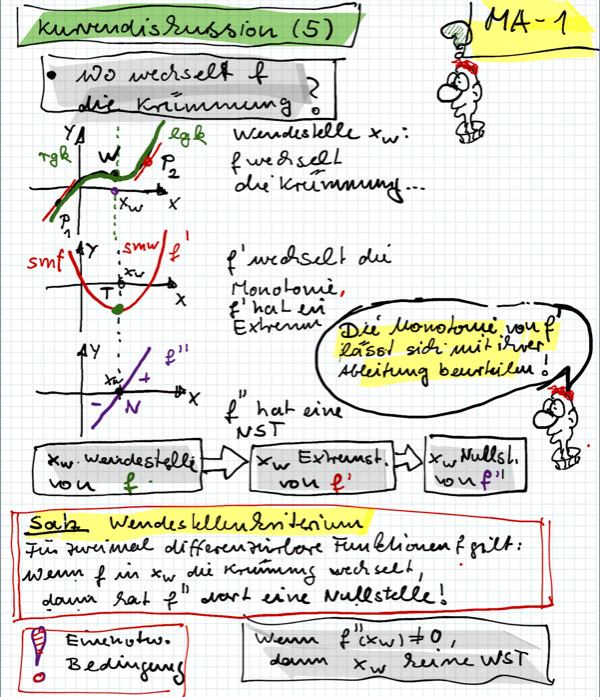 Kurvendiskussion (5)
MA-1
• Wo wechselt f
die Krümmung?
Y
rgk
lgk
W
P2
P1
xw
X
Wendestelle xw:
f wechselt
die Krümmung...
Y
smf
smw
f'
xw
T
X
f' wechselt die
Monotonie,
f' hat ein
Extremum
Die Monotonie von f'
lässt sich mit ihrer
Ableitung beurteilen!
Y
f''
xw
+
-
N
X
f'' hat eine
NST
xw Wendestelle
von f
xw Extremst.
von f'
xw Nullst.
von f''
Satz Wendestellenkriterium
Für zweimal differenzierbare Funktionen f gilt:
Wenn f in xw die Krümmung wechselt,
dann hat f'' dort eine Nullstelle!
! Eine notw.
Bedingung
Wenn f''(xw) ≠ 0,
dann xw keine WST